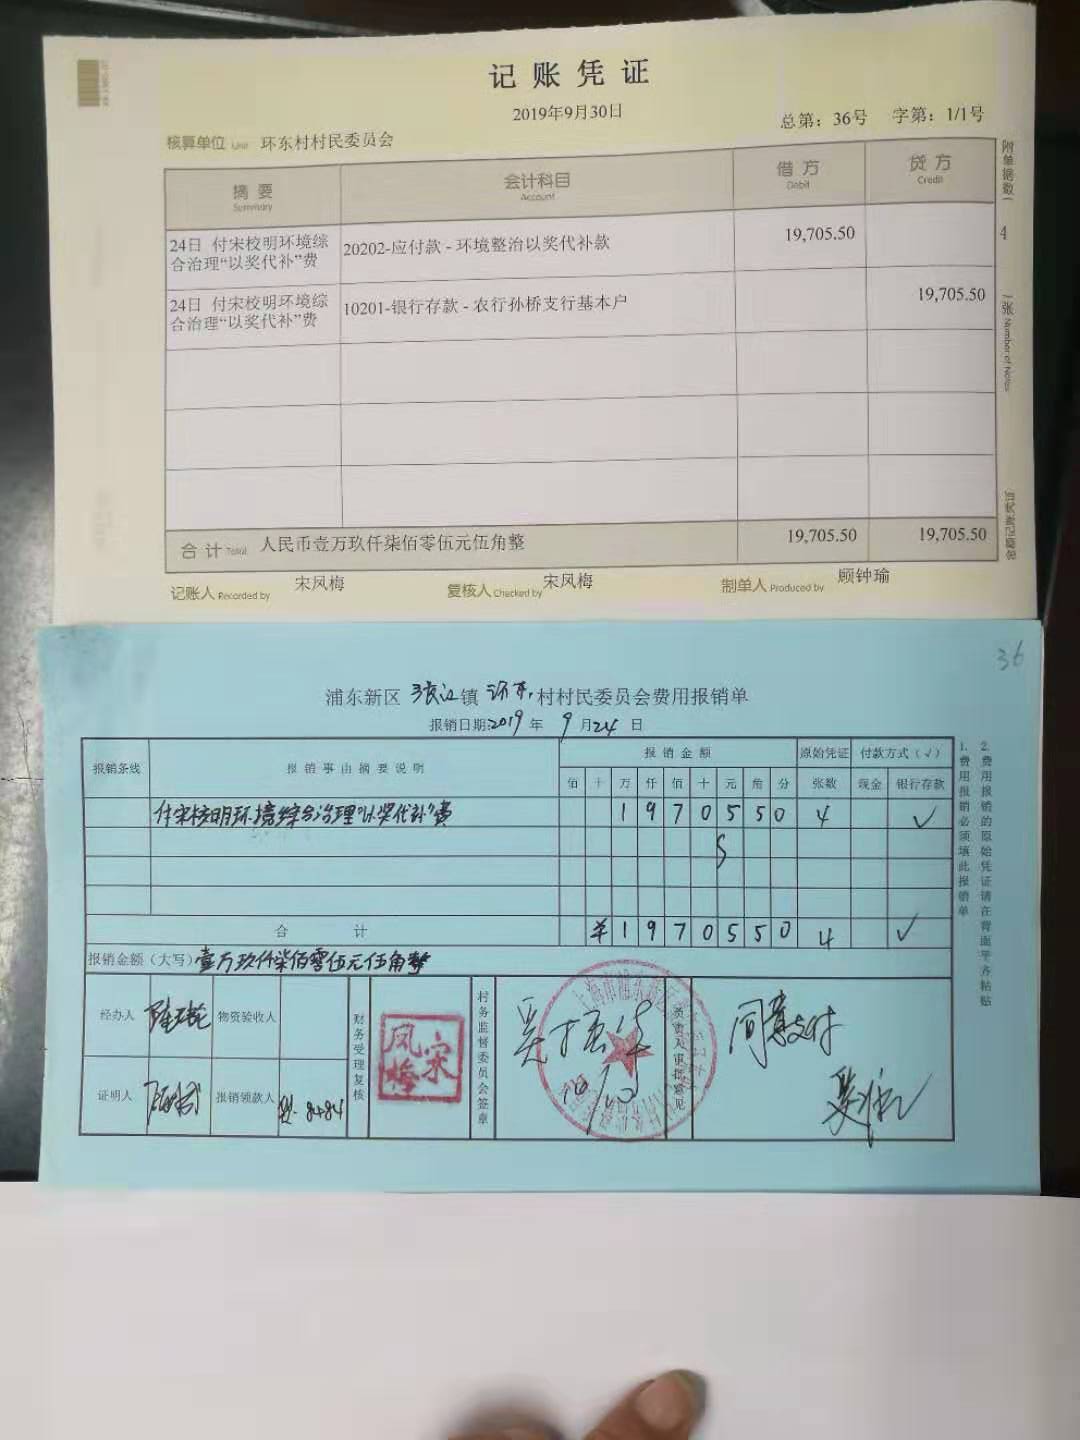 记账凭证
2019年9月30日
总第：36号 字第：1/1号
核算单位 Unit 环东村村民委员会
附单据数 4 张
摘要 会计科目 借方 贷方
Summary Account Debit Credit
24日 付宋校明环境综合治理“以奖代补”费 20202-应付款 - 环境整治以奖代补款 19,705.50
24日 付宋校明环境综合治理“以奖代补”费 10201-银行存款 - 农行孙桥支行基本户 19,705.50
合计 Total 人民币壹万玖仟柒佰零伍元伍角整 19,705.50 19,705.50
记账人 Recorded by 宋凤梅 复核人 Checked by 宋凤梅 制单人 Produced by 顾钟瑜
36
浦东新区 张江 镇 环东 村村民委员会费用报销单
报销日期:2019 年 9 月 24 日
报销条线 报销事由摘要说明 报销金额 原始凭证 付款方式（√）
佰 十 万 仟 佰 十 元 角 分 张数 现金 银行存款
付宋校明环境综合治理“以奖代补”费 1 9 7 0 5 5 0 4 √
5
合计 ¥ 1 9 7 0 5 5 0 4 √
报销金额（大写）壹万玖仟柒佰零伍元伍角整
经办人 物资验收人 财务受理复核 宋凤梅 村务监督委员会签章 负责人审批意见 同意支付
证明人 报销领款人
1.费用报销必须填此报销单
2.费用报销的原始凭证请在背面平齐粘贴